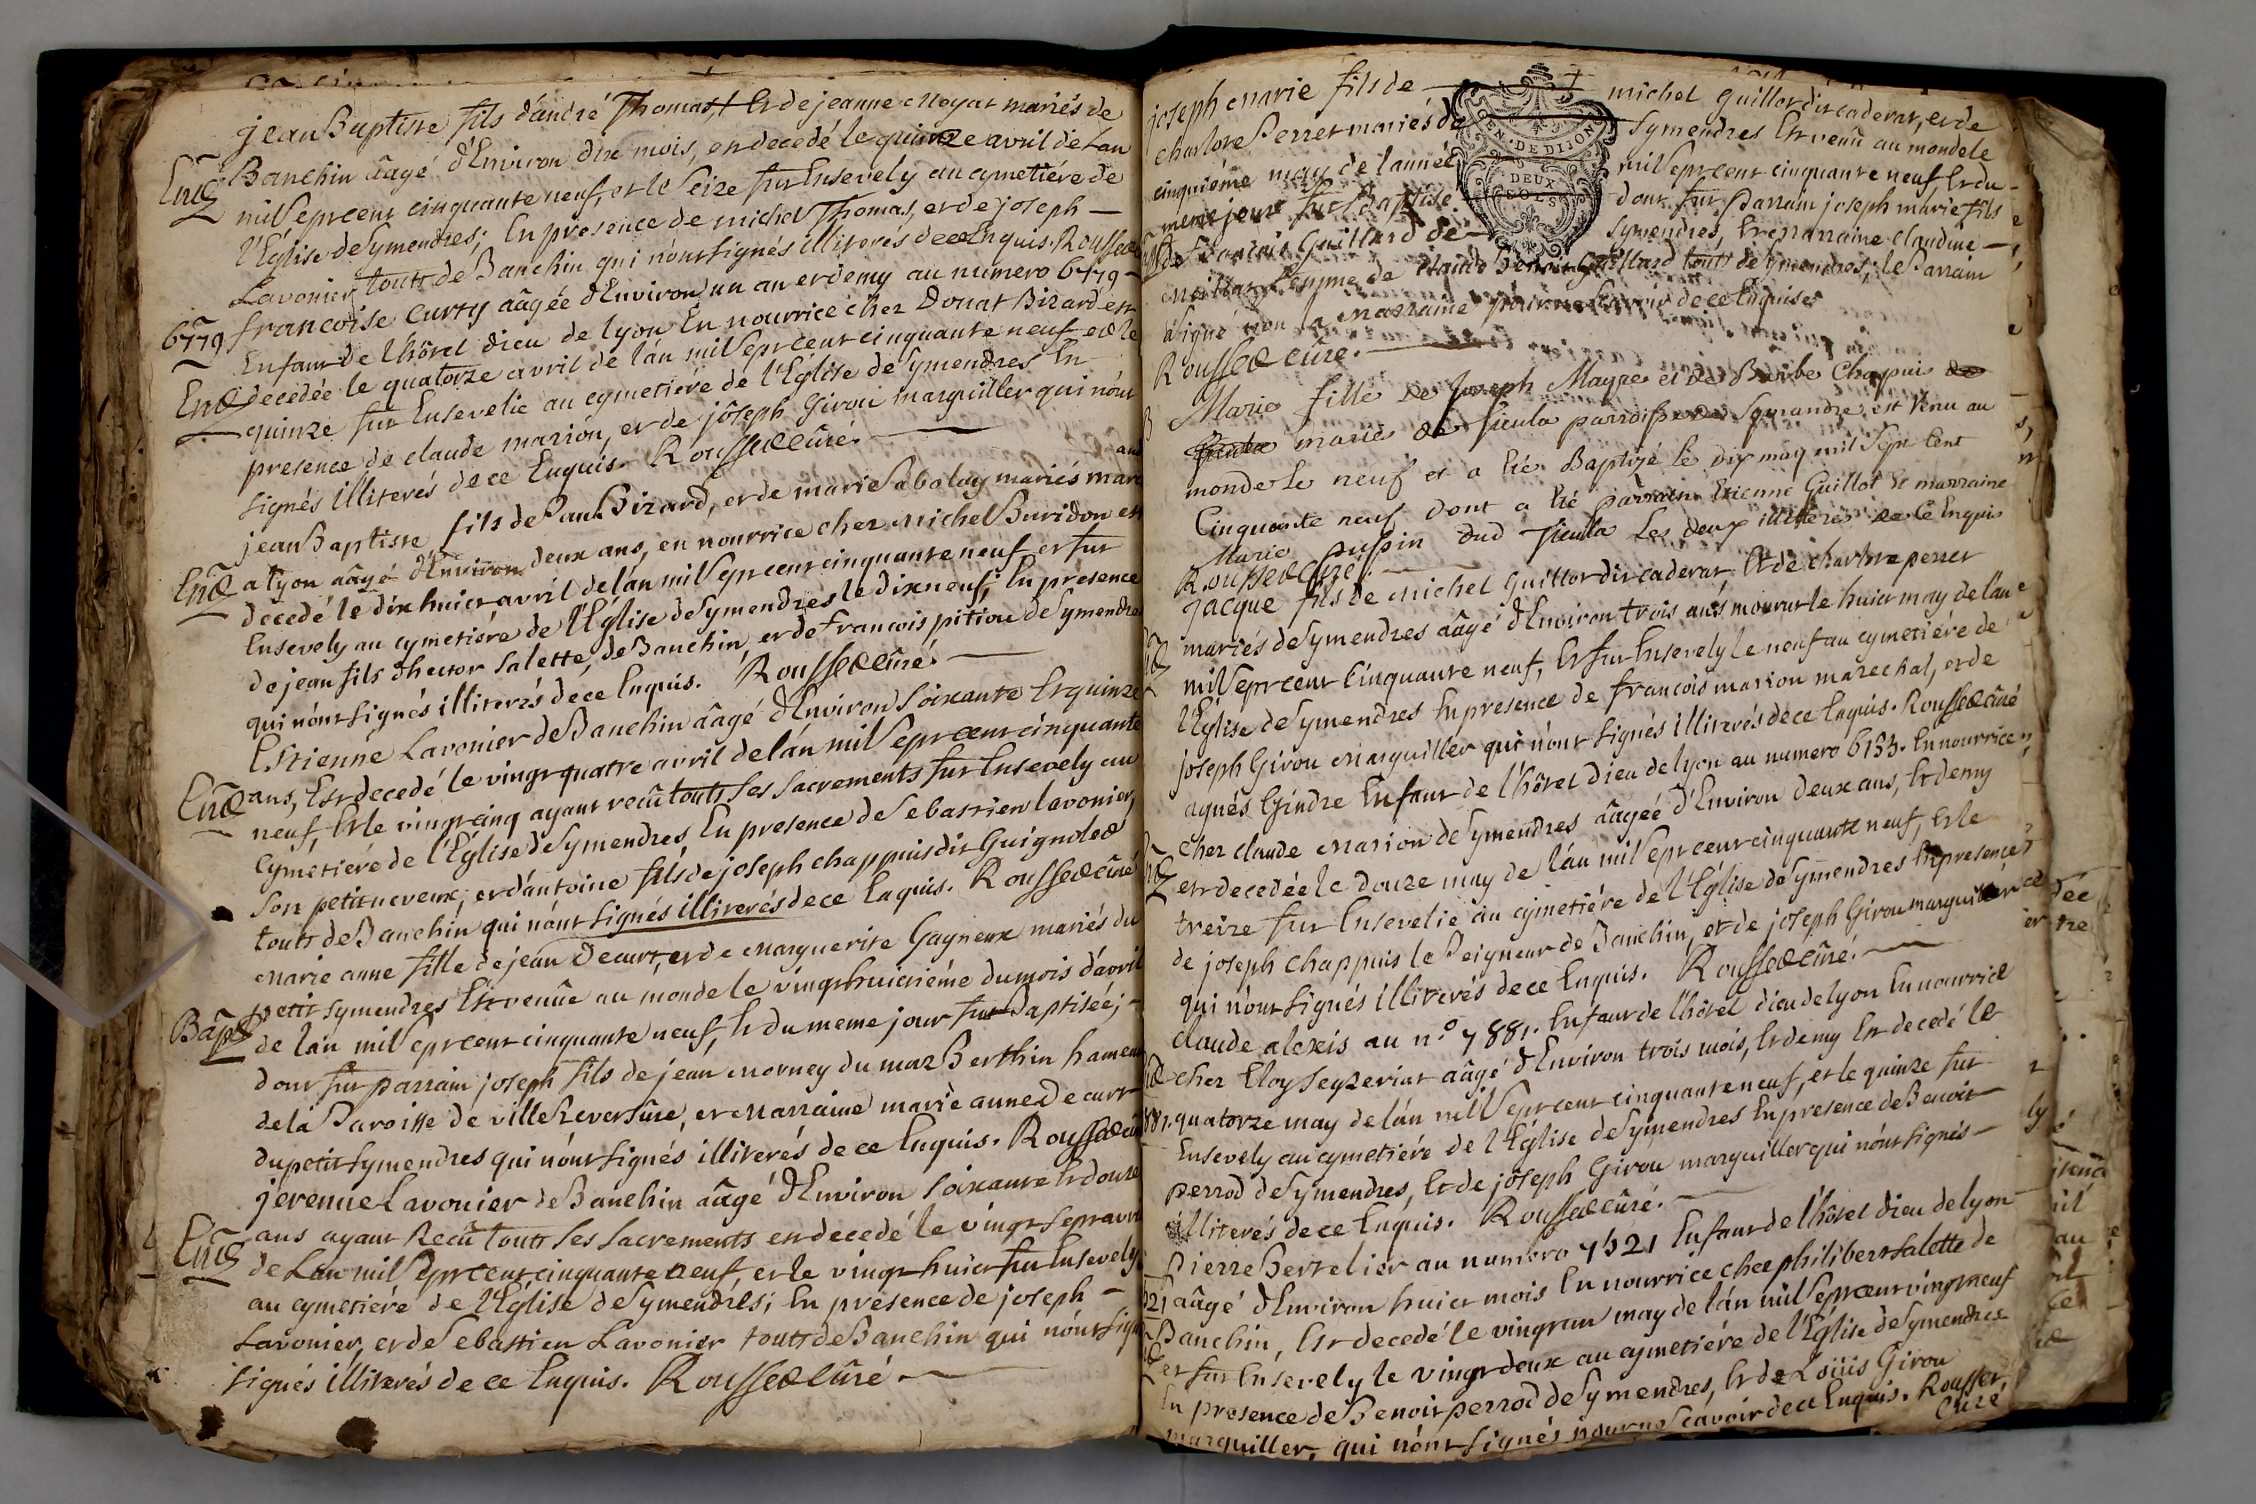 jean Baptiste fils d'andré Thomas, et de jeanne Moyat mariés de
Banchin âagé d'Environ dix mois, en decedé le quinze avril de Lan
Ene
mil Septcent cinquante neuf, et le Seize fut Ensevely au cymetiére de
l'Eglise de Symendres; En presence de michel Thomas, et de joseph —
Lavonier touts de Banchin qui n'ont signés illiterés de ce Enquis. Rousse
6779
francoise Curty âagée d'Environ un an et demy au numero 6779 -
Enfant de l'hôtel dieu de lyon En nourrice chez Donat Bizard est
Ene
decedée le quatorze avril de l'an mil Septcent cinquante neuf et le
quinze fut Ensevelie au cymetiére de l'Eglise de Symendres En
presence de claude marion, et de jôseph Girou marguiller qui n'ont
signés illiterés de ce Enquis. Rousse curé.
jean Baptiste fils de Paul Bizard, et de marie Sabalay mariés mar
Ene
a lyon aâgé d'Environ deux ans, en nourrice chez michel Buridon est
decedé le dix huict avril de lan mil Septcent cinquante neuf et fut
Ensevely au cymetiére de l'Eglise de Symendres le dix neuf; En presence
de jean fils d'hector Salette, de Banchin, et de Francois pition de Symendre
qui n'ont signés illiterés de ce Enquis. Rousse curé.
Estienne Lavonier de Banchin aâgé d'Environ Soixante Et quinze
Ene
ans, Est decedé le vingt quatre avril de lan mil Septcent cinquante
neuf, Et le vingt cinq ayant recû touts ses Sacrements fut Ensevely au
cymetiére de l'Eglise de Symendres, En presence de Sebastien lavonier,
son petit neveux, et d'antoine fils de joseph chappuis dit Guignole
touts de Banchin qui n'ont signés illiterés de ce Enquis. Rousse curé
Marie anne fille de jean Decurt, et de Marguerite Gagneux mariés du
petit Symendres Est venüe au monde le vingt huictiéme du mois d'avril
Bape
de lan mil Septcent cinquante neuf, Et du meme jour fut Baptisée; -
dont fut parrain joseph fils de jean Morney du maz Berthin hameau
de la Paroisse de ville Reversûre, et Marraine marie anne Decurt
du petit Symendres qui n'ont signés illiterés de ce Enquis. Rousse curé
jeremie Lavonier de Banchin aâgé d'Environ Soixante Et douze
Ene
ans ayant Recû touts ses Sacrements en decedé le vingt Sept avril
de Lan mil Septcent cinquante neuf, et le vingt huict fut Ensevely
au cymetiére de l'Eglise de Symendres; En presence de joseph —
Lavonier, et de Sebastien Lavonier touts de Banchin qui n'ont sign
signés illiterés de ce Enquis. Rousse Curé
joseph Marie fils de michel Guillot dit caderat, et de
charlote Perret mariés de Symendres Est venu au monde le
cinquiéme may de l'année mil Septcent cinquante neuf, Et du
meme jour fut Baptisé. dont fut Parrain joseph marie fils
de Francois Guillard de Symendres, Et Marraine claudine —
GEN. DE DIJON
DEUX SOLS
femme de claude Benoit Guillard touts de Symendres, le Parrain
a signé non la Marraine pour ne scavoir de ce Enquise
Rousse curé.
Marie fille de Joseph Mayre et de Barbe Chapuis de
mariés de ficula parroisse de Symandre est Venu au
monde le neuf et a Eté Baptisé le dix may mil Sept Cent
Cinquante neuf dont a Eté parrain Etienne Guillot Et marraine
Marie pupin dud ficula Les deux illiteres de ce Enquis
Rousse curé.
jacque fils de michel Guillot dit caderat Et de charlote perret
mariés de Symendres aâgé d'Environ trois ans mourut le huict may de lan
mil Septcent Cinquante neuf, Et fut Ensevely le neuf au cymetiére de
l'Eglise de Symendres En presence de francois marion marechal, et de
joseph Girou Marguiller qui n'ont signés illiterés de ce Enquis. Rousse curé
agnés Gindre Enfant de l'hôtel Dieu de lyon au numero 6133. En nourrice
chez claude Marion de Symendres âagée d'Environ deux ans, Et demy
est decedée le douze may de l'an mil Septcent cinquante neuf, Et le
treize fut Ensevelie au cymetiére de l'Eglise de Symendres En presence
de joseph chappuis le Peigneur de Banchin, et de joseph Girou marguiller
qui n'ont signés illiterés de ce Enquis. Rousse curé.
claude alexis au n.° 7881. Enfant de l'hôtel dieu de lyon En nourrice
chez Eloy Seyzeriat aâgé d'Environ trois mois, Et demy Est decedé le
881.
quatorze may de lan mil Septcent cinquante neuf, et le quinze fut
Ensevely au cymetiére de l'Eglise de Symendres En presence de Benoit —
perrod de Symendres, Et de jôseph Girou marguiller qui n'ont signés —
illiterés de ce Enquis. Rousse curé.
Pierre Bertelier au numero 7321 Enfant de l'hôtel dieu de lyon
321
aâgé d'Environ huict mois En nourrice chez philibert Salette de
Banchin, Est decedé le vingt un may de lan mil Septcent vingt neuf
et fut Ensevely le vingt deux au cymetiére de l'Eglise de Symendres
En presence de Benoit perrod de Symendres, Et de Loüis Girou
marguiller, qui n'ont signés pour ne Scavoir de ce Enquis. Rousse
Curé